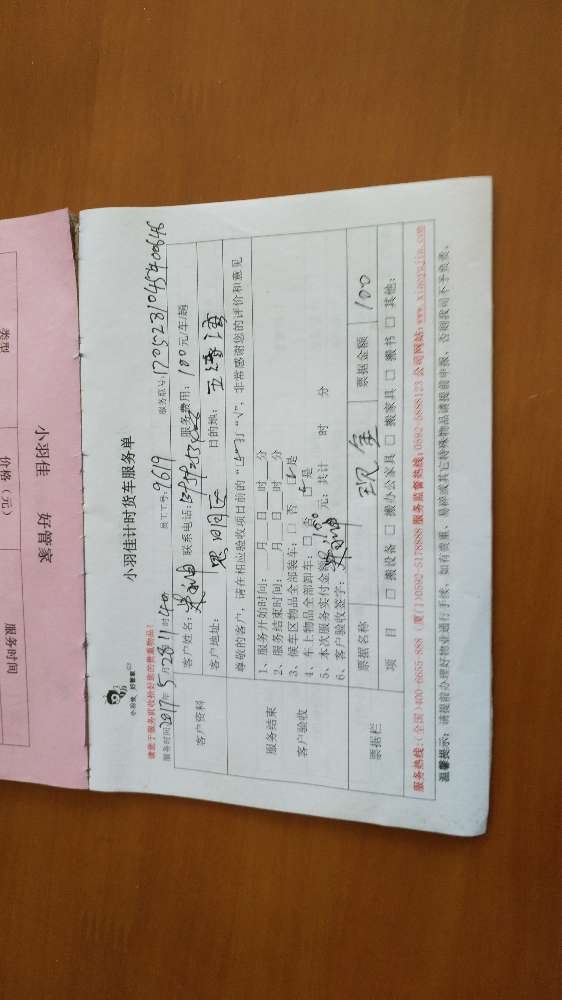 类型
价格（元）
服务时间
小羽佳 好管家
小羽佳 好管家
小羽佳计时货车服务单
请您于服务前收拾好您的贵重物品！
服务时间:2017年5月28日11时40 员工工号:9619 服务单号:
客户资料
客户姓名: 联系电话: 服务费用: 100元/车/趟
客户地址: 思明区 目的地: 五缘湾
尊敬的客户，请在相应验收项目前的“□”打“√”，非常感谢您的评价和意见
服务结束
客户验收
1、服务开始时间: 月 日 时 分
2、服务结束时间: 月 日 时 分
3、候车区物品全部装车: □ 否 □是
4、车上物品全部卸车: □ 否 □是
5、本次服务实付金额: 100 元; 共计 时 分
6、客户验收签字:
票据栏
票据名称 现金 票据金额 100
项 目 □ 搬设备 □ 搬办公家具 □ 搬家具 □ 搬书 □ 其他:
服务热线:(全国)400-6655-888 (厦门)0592-5178888 服务监督热线:0592-1888123 公司网站:www.xiaoyujia.com
温馨提示: 请提前办理好物业通行手续, 如有贵重、易碎或其它特殊物品请提前申报, 否则我司不予负责。